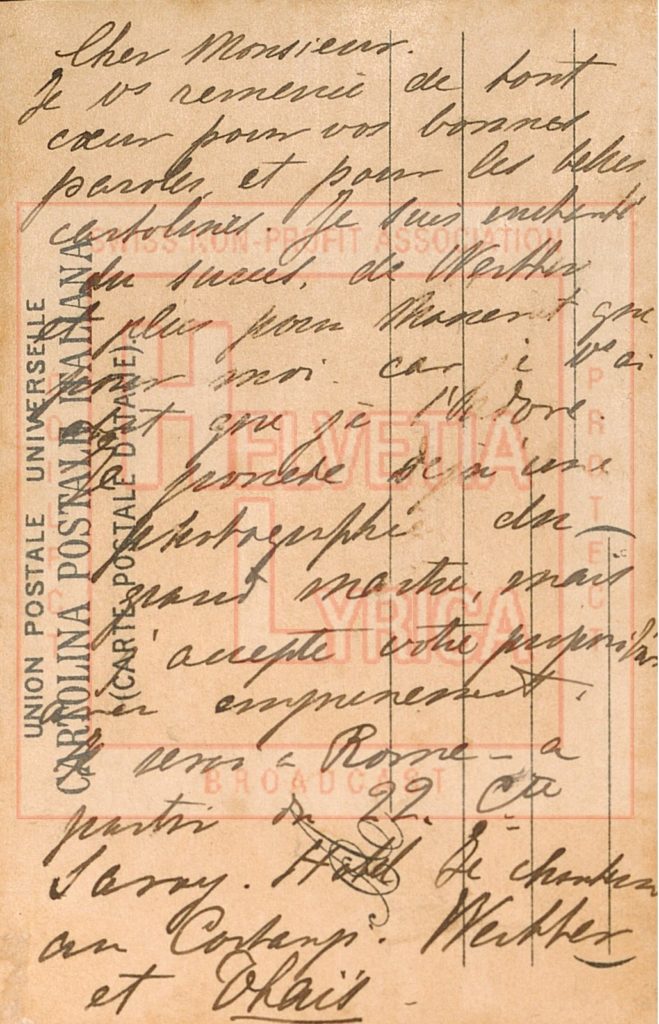 Cher Monsieur.
Je vs remercie de tout
cœur pour vos bonnes
paroles, et pour les belles
cartolines. Je suis enchanté
du succès, de Werther
et plus pour Massenet que
pour moi. car je vs ai
dit que je l'adore.
Je possède déjà une
photographie du
grand maître, mais
j'accepte votre proposition
avec empressement.
Je serai à Rome - à
partir du 22. Cte
Savoy. Hotel Je chanterai
au Costanzi. Werther
et Thaïs
UNION POSTALE UNIVERSELLE
CARTOLINA POSTALE ITALIANA
(CARTE POSTALE D'ITALIE)
SWISS NON-PROFIT ASSOCIATION
HELVETIA
LYRICA
BROADCAST
PROTECT